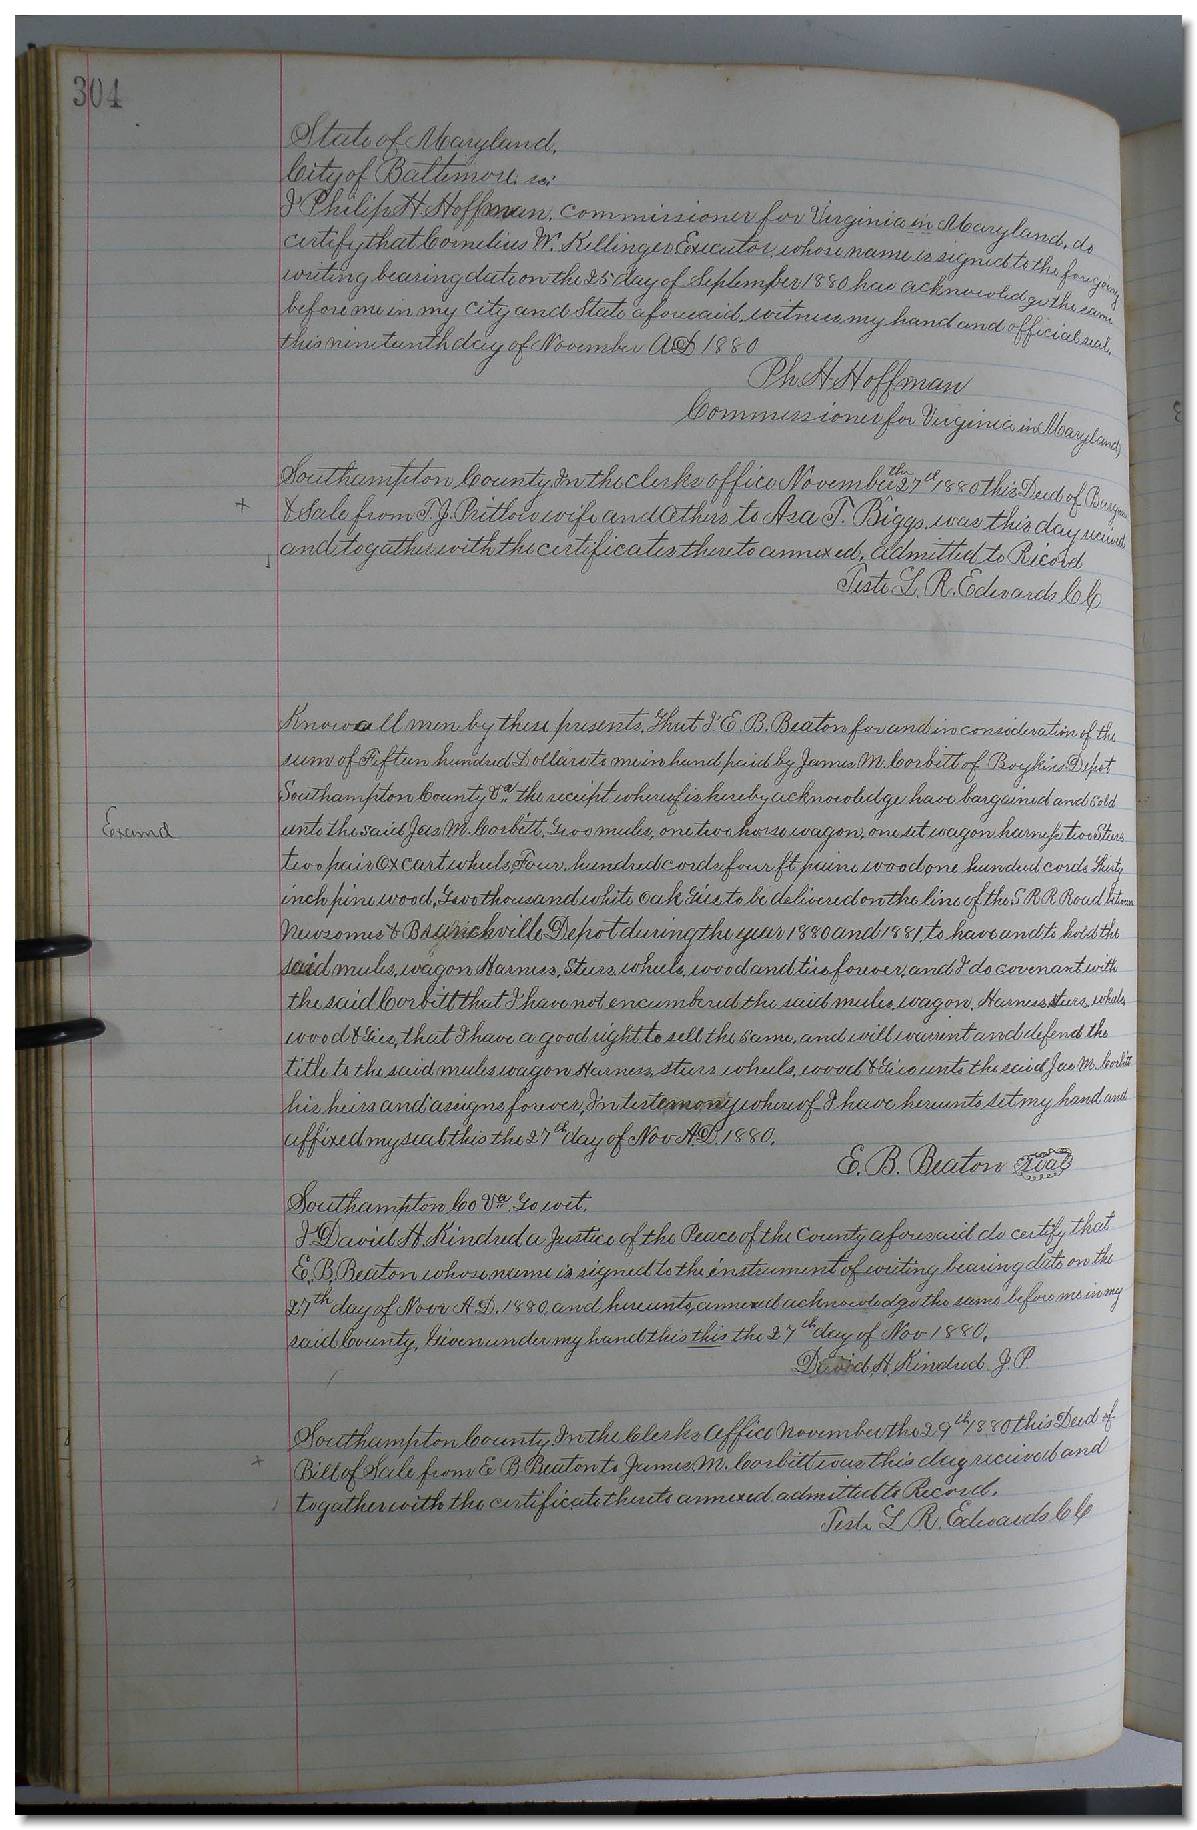 304
State of Maryland,
City of Baltimore, sci
I Philip H Hoffman, commissioner for Virginia in Maryland, do
certify that Cornelius W. Killinger Executor, whose name is signed to the foregoing
writing bearing date on the 25 day of September 1880 has acknowledge the same
before me in my City and State aforesaid, witness my hand and official seal,
this nineteenth day of November AD 1880
Ph H Hoffman
Commissioner for Virginia in Maryland,
Southampton County, In the clerks office November the 27th 1880 this Deed of Bargain
+
& Sale from T. J. Pritlow wife and Others to Asa T. Biggs, was this day received
and togather with the certificates thereto annexed, admitted to Record
Teste L. R. Edwards CC
Know all men by these presents, That I E. B. Beaton for and in consideration of the
sum of Fifteen hundred Dollars to me in hand paid by James M. Corbitt of Boykins Depot
Southampton County Va. the receipt whereof is hereby acknowledge have bargained and sold
Examd
unto the said Jas M. Corbitt, Two mules, one two horse wagon, one set wagon harness two Steers
two pair Ox cart wheels, Four hundred cords four ft paine wood one hundred cords Thirty
inch pine wood, Two thousand white oak Ties to be delivered on the line of the S R R Road between
Newsomes & Bryrickville Depot during the year 1880 and 1881, to have and to hold the
said mules, wagon Harness, Steers, wheels, wood and ties forever, and I do covenant with
the said Corbitt that I have not encumbered the said mules, wagon, Harness, steers, wheels
wood & Ties, that I have a good right to sell the same, and will warrent and defend the
title to the said mules wagon Harness, steers wheels, wood & Ties unto the said Jas M. Corbitt
his heirs and asigns forever, In testemony whereof I have hereunto set my hand and
affixed my seal this the 27th day of Nov A.D. 1880.
E. B. Beaton seal
Southampton Co Va To wit.
I David H. Kindred a Justice of the Peace of the County aforesaid do certify that
E. B. Beaton whose name is signed to the instrument of writing bearing date on the
27th day of Novr A.D. 1880, and hereunto, annexed acknowledge the same before me in my
said County, Given under my hand this this the 27th day of Nov 1880.
David H. Kindred J. P.
Southampton County, In the Clerks Office November the 29th 1880 this Deed of
+
Bill of Sale from E B Beaton to James M. Corbitt was this day recieved and
togather with the certificate thereto annexed admitted to Record.
Teste L R. Edwards CC